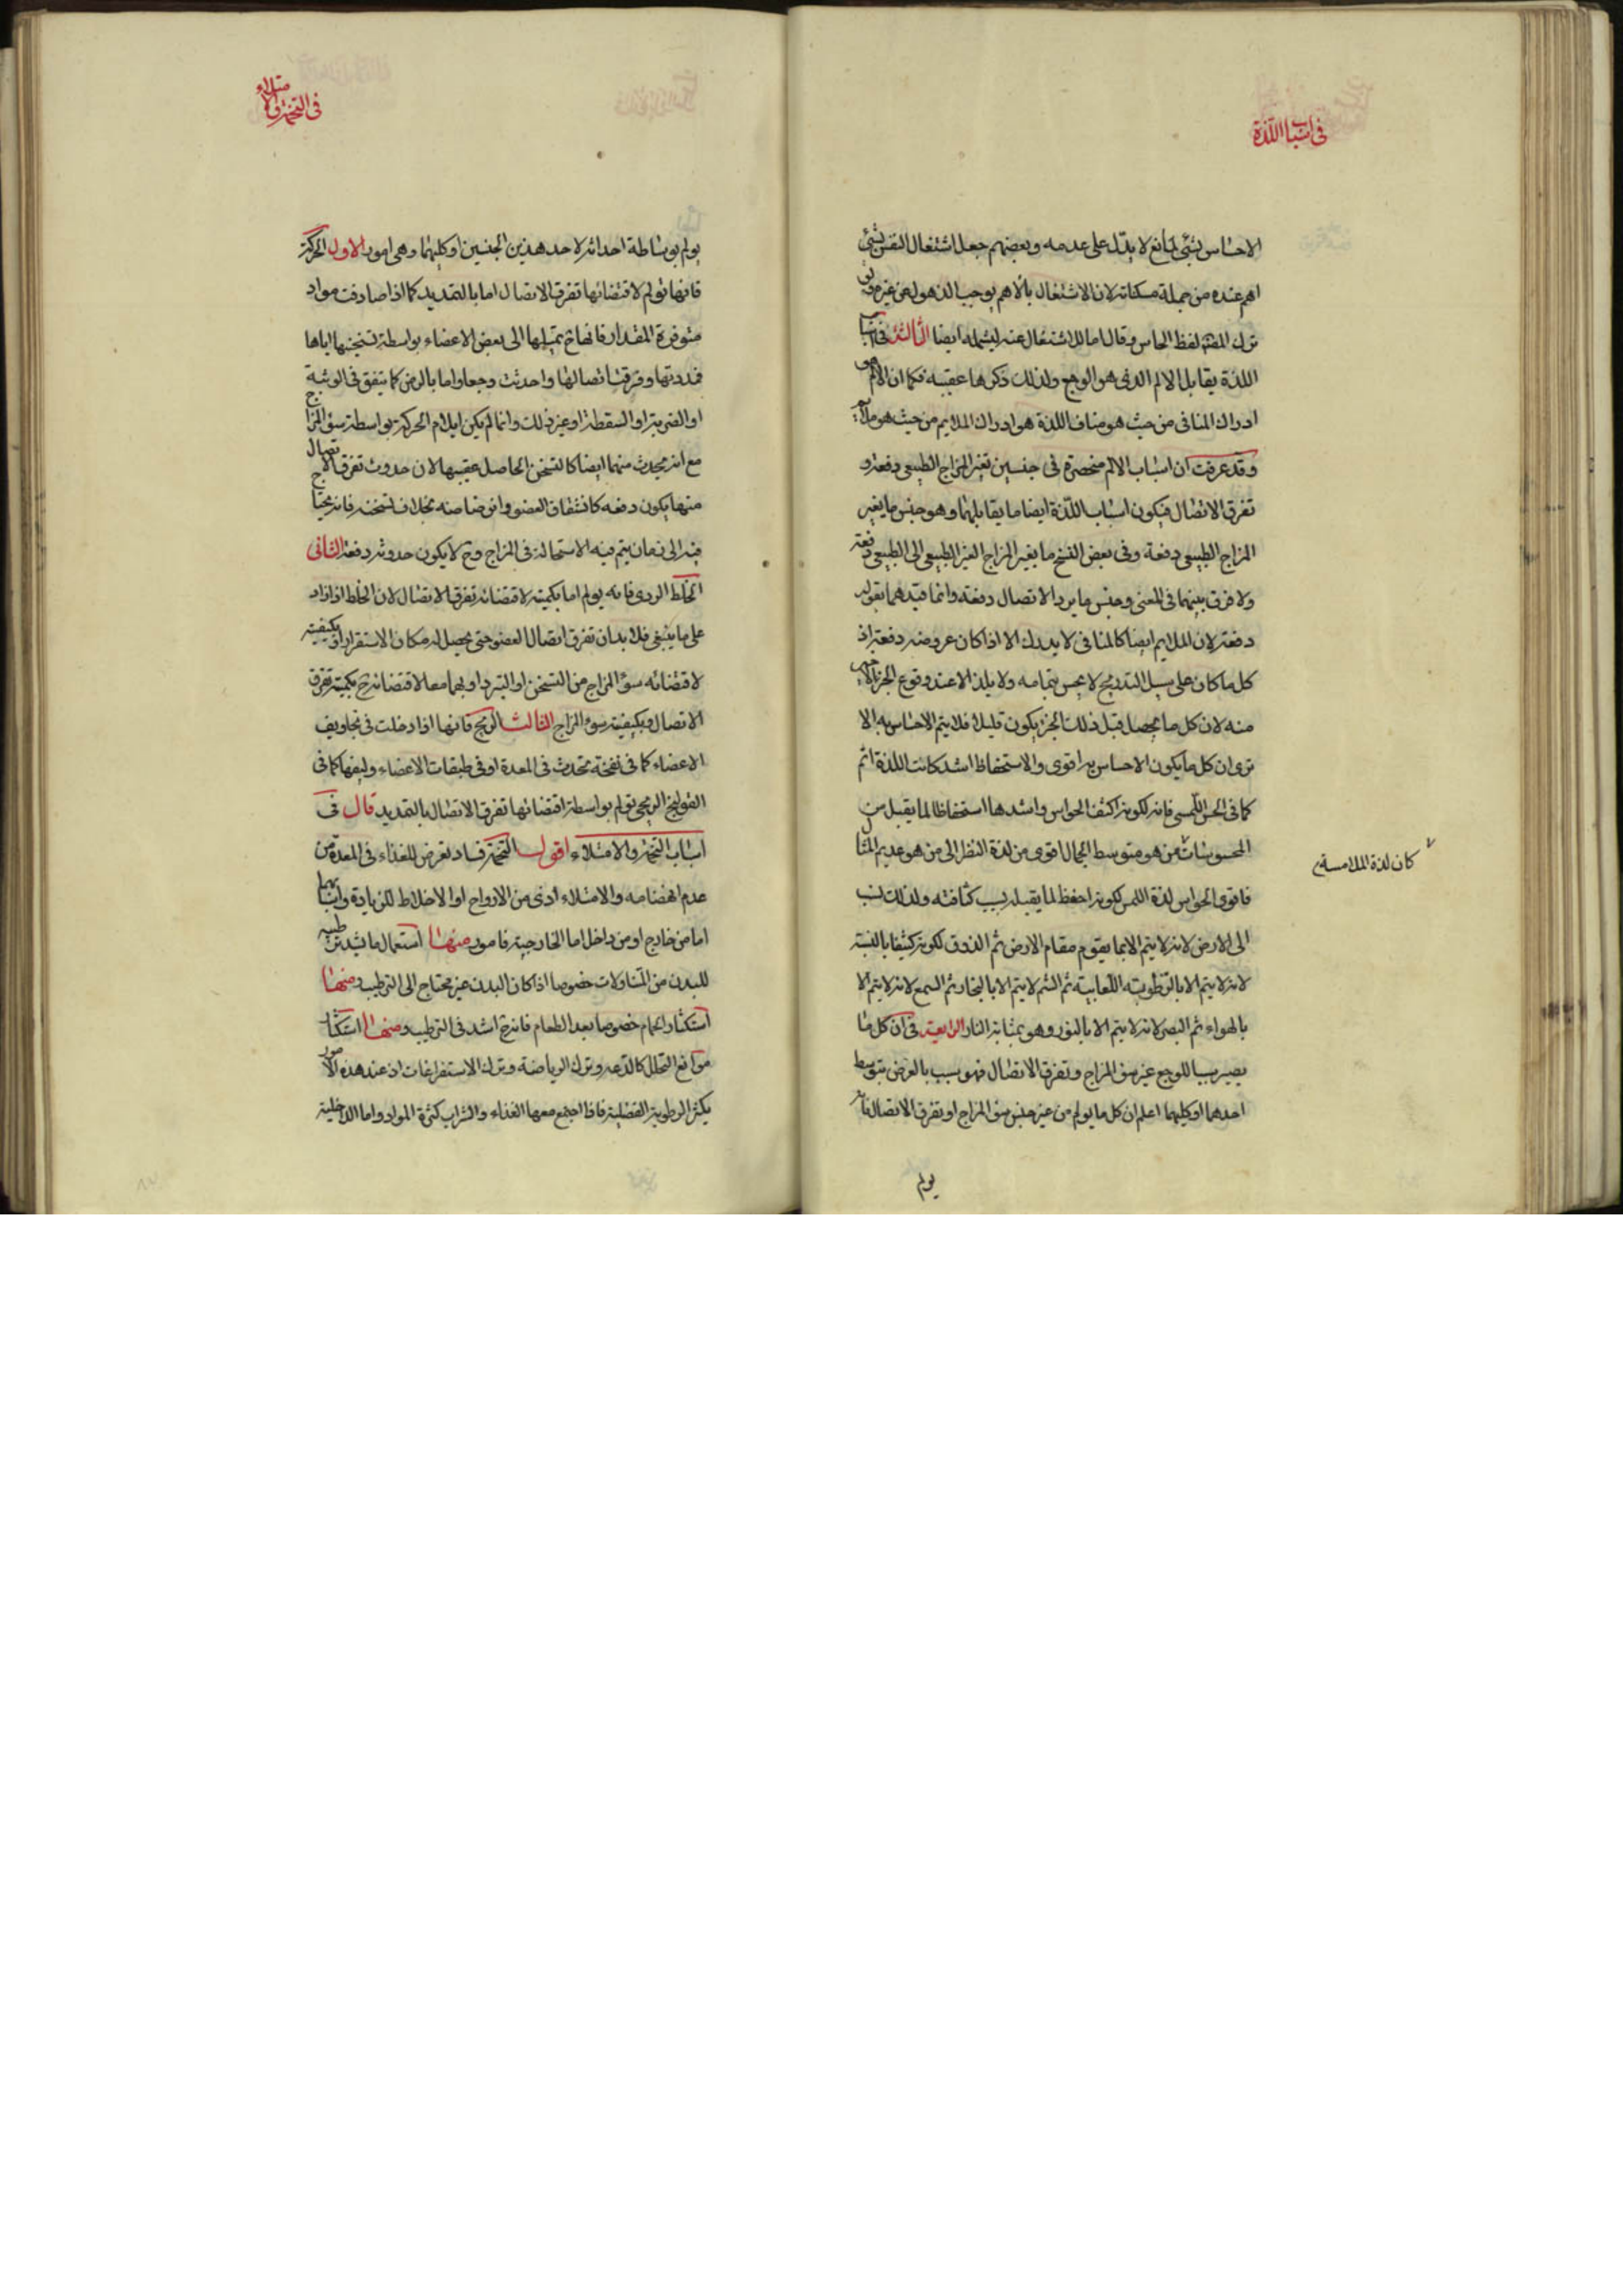 في اسباب اللذة
الاحساس بشئ لمانع لا يدل على عدمه وبعضهم جعل اشتغال النفس بشئ
اهم عنده من جملة مسكناته لان الاشتغال بالاهم يوجب الذهول عن غيره
ترك المص لفظ الحاس وقال اما للاشتغال عنه ليشمله ايضا الثالثة في اسباب
اللذة يقابل الالم الذي هو الوجع ولذلك ذكرها عقيبه فكما ان الالم هو
ادراك المنافي من حيث هو مناف اللذة هو ادراك الملايم من حيث هو ملايم
وقد عرفت ان اسباب الالم منحصرة في جنسين تغير المزاج الطبيعي دفعة و
تفرق الاتصال فيكون اسباب اللذة ايضا ما يقابلهما وهو جنس ما يغير
المزاج الطبيعي دفعة وفي بعض النسخ ما يغير المزاج الغير الطبيعي الى الطبيعي دفعة
ولا فرق بينهما في المعنى وجنس ما يرد الاتصال دفعة وانما قيدهما بقوله
دفعة لان الملايم ايضا كالمنافي لا يدرك الا اذا كان عروضه دفعة اذ
كل ما كان على سبيل التدريج لا يحس بتمامه ولا يلذ الا عند وقوع الجزء الاخير
منه لان كل ما يحصل قبل ذلك الجزء يكون قليلا فلا يتم الاحساس به الا
ترى ان كل ما يكون الاحساس به اقوى والاستحفاظ اشد كانت اللذة اتم
كما في الحس اللمسي فانه لكونه اكثف الحواس واشدها استحفاظا لما يقبل من
المحسوسات من هو متوسط الجمال اقوى من لذة النظر الى من هو عديم المثال
كان لذة الملامسة
فاقوى الحواس لذة اللمس لكونه احفظ لما يقبله بسبب كثافته ولذلك نسب
الى الارض لانه لا يتم الا بما يقوم مقام الارض ثم الذوق لكونه كثيفا بالنسبة
لانه لا يتم الا بالرطوبته اللعابية ثم الشم لا يتم الا بالبخار ثم السمع لانه لا يتم الا
بالهواء ثم البصر لانه لا يتم الا بالنور وهو بمثابة النار الرابعة في ان كل ما
يصير سببا للوجع غير سوء المزاج وتفرق الاتصال فهو سبب بالعرض بتوسط
احدهما او كليهما اعلم ان كل ما يولم من غير جنس سوء المزاج او تفرق الاتصال فانه
يولم
في التخمة والامتلاء
يولم بوساطة احداثه لاحد هذين الجنسين او كليهما وهي امور الاول الحركة
فانها تولم لاقتضائها تفرق الاتصال اما بالتمديد كما اذا صادفت مواد
متوفرة المقدار فانها ح تميلها الى بعض الاعضاء بواسطة تسخينها اياها
فمددتها وفرقت اتصالها واحدثت وجعا واما بالرض كما يتفق في الوثبة
او الضربة او السقطة او غير ذلك وانما لم يكن ايلام الحركة بواسطة سوء المزاج
مع انه يحدث منهما ايضا كالتسخن الحاصل عقيبها لان حدوث تفرق الاتصال
منها يكون دفعه كانشقاق العضو وانرضاضه بخلاف تسخنه فانه يحتاج
فيه الى زمان يتم فيه الاستحالة في المزاج وح لا يكون حدوثه دفعة الثاني
الخلط الردي فانه يولم اما بكميته لاقتضائه تفرق الاتصال لان الخلط اذا زاد
على ما ينبغي فلا بد ان تفرق اتصال العضو حتى يحصل له مكان الاستقرار او بكيفيته
لاقتضائه سوء المزاج من التسخن او التبرد او بهما معا لاقتضائه ح بكميته تفرق
الاتصال وبكيفيته سوء المزاج الثالث الريح فانها اذا دخلت في تجاويف
الاعضاء كما في نفخة تحدث في المعدة او في طبقات الاعضاء وليفها كما في
القولنج الريحي تولم بواسطة اقتضائها تفرق الاتصال بالتمديد قال في
اسباب التخمة والامتلاء اقول التخمة فساد تعرض للغذاء في المعدة من
عدم انهضامه والامتلاء اذى من الارواح او الاخلاط لزيادة واسبابهما
اما من خارج او من داخل اما الخارجية فامور منها استعمال ما يشد ترطيبه
للبدن من المتناولات خصوصا اذا كان البدن غير محتاج الى الترطيب ومنها
استكثار الحمام خصوصا بعد الطعام فانه ح اشد في الترطيب ومنها استكثار
موانع التحلل كالدعه وترك الرياضة وترك الاستفراغات اذ عند هذه الامور
يكثر الرطوبة الفضلية فاذا اجتمع معها الغذاء والشراب كثرة المواد واما الداخلية